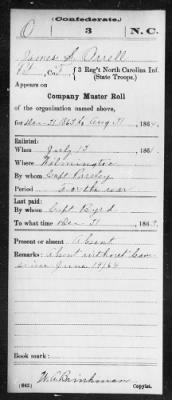 (Confederate.)
O 3 N.C.
James S. Orrell
Co. 3 Reg't North Carolina Inf.
(State Troops.)
Appears on
Company Muster Roll
of the organization named above,
for Dec 31 1863 to Aug 31, 1864.
Enlisted:
When July 13, 186
Where Wilmington
By whom Capt Parsley
Period For the war
Last paid:
By whom Capt Byrd
To what time Dec 31, 1863.
Present or absent Absent
Remarks: Absent without leave
since June 1864
Book mark:
W.A. Brinkman
(642) Copyist.